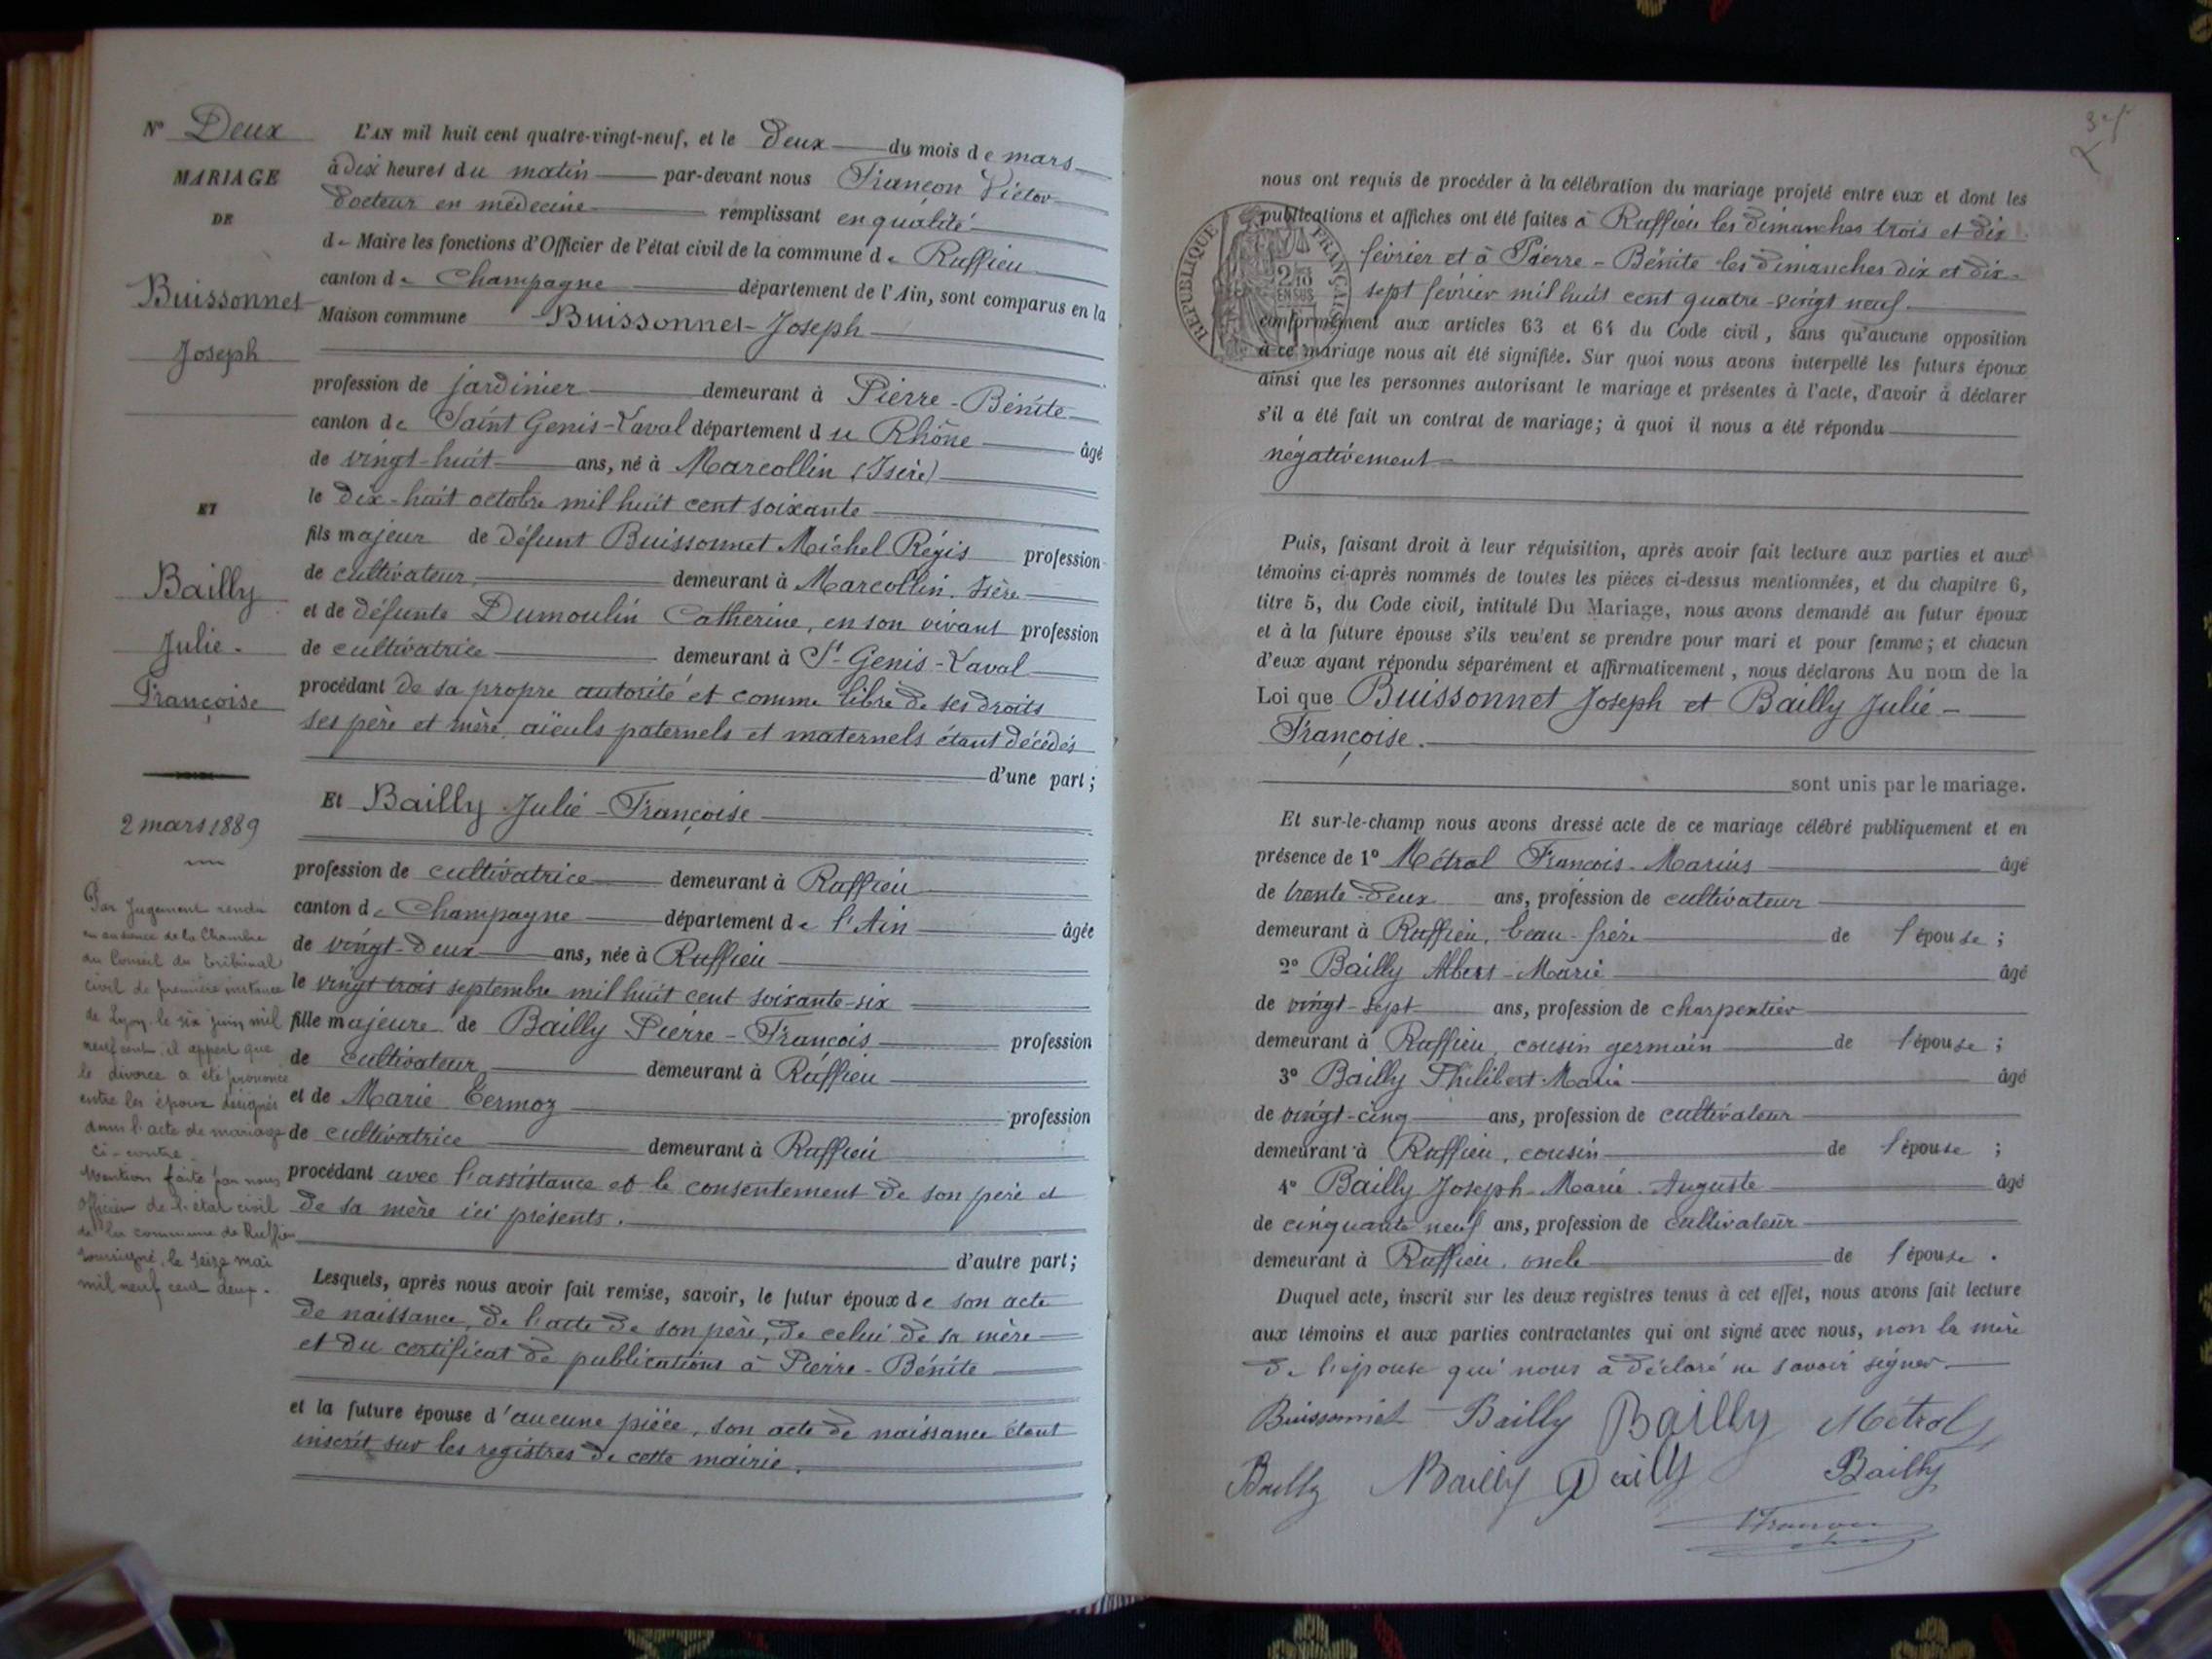 N° Deux
MARIAGE
DE
Buissonnet
Joseph
ET
Bailly
Julie-
Françoise
2 mars 1889
Par Jugement rendu
en audience de la Chambre
du Conseil du tribunal
civil de première instance
de Lyon le six juin mil
neuf cent, il appert que
le divorce a été prononcé
entre les époux désignés
dans l'acte de mariage
ci-contre.
Mention faite par nous
officier de l'état civil
de la commune de Ruffieu
soussigné, le seize mai
mil neuf cent deux.
L'AN mil huit cent quatre-vingt-neuf, et le Deux du mois de mars
à dix heures du matin par-devant nous Françon Victor
Docteur en médecine remplissant en qualité
de Maire les fonctions d'Officier de l'état civil de la commune de Ruffieu
canton de Champagne département de l'Ain, sont comparus en la
Maison commune Buissonnet-Joseph
profession de jardinier demeurant à Pierre-Bénite
canton de Saint Genis-Laval département du Rhône âgé
de vingt-huit ans, né à Marcollin (Isère)
le dix-huit octobre mil huit cent soixante
fils majeur de défunt Buissonnet Michel Régis profession
de cultivateur demeurant à Marcollin, Isère
et de défunte Dumoulin Catherine, en son vivant profession
de cultivatrice demeurant à St-Genis-Laval
procédant de sa propre autorité et comme libre de ses droits
ses père et mère, aïeuls paternels et maternels étant décédés
d'une part;
Et Bailly Julie-Françoise
profession de cultivatrice demeurant à Ruffieu
canton de Champagne département de l'Ain âgée
de vingt-deux ans, née à Ruffieu
le vingt trois septembre mil huit cent soixante-six
fille majeure de Bailly Pierre-François profession
de cultivateur demeurant à Ruffieu
et de Marie Termoz profession
de cultivatrice demeurant à Ruffieu
procédant avec l'assistance et le consentement de son père et
de sa mère ici présents.
d'autre part;
Lesquels, après nous avoir fait remise, savoir, le futur époux de son acte
de naissance, de l'acte de son père, de celui de sa mère
et du certificat de publications à Pierre-Bénite
et la future épouse d'aucune pièce, son acte de naissance étant
inscrit sur les registres de cette mairie.
nous ont requis de procéder à la célébration du mariage projeté entre eux et dont les
publications et affiches ont été faites à Ruffieu les dimanches trois et dix
février et à Pierre-Bénite les dimanches dix et dix-
sept février mil huit cent quatre-vingt neuf.
RÉPUBLIQUE FRANÇAISE
conformément aux articles 63 et 64 du Code civil, sans qu'aucune opposition
à ce mariage nous ait été signifiée. Sur quoi nous avons interpellé les futurs époux
ainsi que les personnes autorisant le mariage et présentes à l'acte, d'avoir à déclarer
s'il a été fait un contrat de mariage; à quoi il nous a été répondu
négativement
Puis, faisant droit à leur réquisition, après avoir fait lecture aux parties et aux
témoins ci-après nommés de toutes les pièces ci-dessus mentionnées, et du chapitre 6,
titre 5, du Code civil, intitulé Du Mariage, nous avons demandé au futur époux
et à la future épouse s'ils veulent se prendre pour mari et pour femme; et chacun
d'eux ayant répondu séparément et affirmativement, nous déclarons Au nom de la
Loi que Buissonnet Joseph et Bailly Julie-
Françoise.
sont unis par le mariage.
Et sur-le-champ nous avons dressé acte de ce mariage célébré publiquement et en
présence de 1° Métral François-Marius âgé
de trente-deux ans, profession de cultivateur
demeurant à Ruffieu, beau-frère de l'épouse;
2° Bailly Albert-Marie âgé
de vingt-sept ans, profession de charpentier
demeurant à Ruffieu, cousin germain de l'épouse;
3° Bailly Philibert-Marie âgé
de vingt-cinq ans, profession de cultivateur
demeurant à Ruffieu, cousin de l'épouse;
4° Bailly Joseph-Marie-Auguste âgé
de cinquante neuf ans, profession de cultivateur
demeurant à Ruffieu, oncle de l'épouse.
Duquel acte, inscrit sur les deux registres tenus à cet effet, nous avons fait lecture
aux témoins et aux parties contractantes qui ont signé avec nous, non la mère
de l'épouse qui nous a déclaré ne savoir signer
Buissonnet Bailly Bailly Métral
Bailly Bailly Bailly Bailly